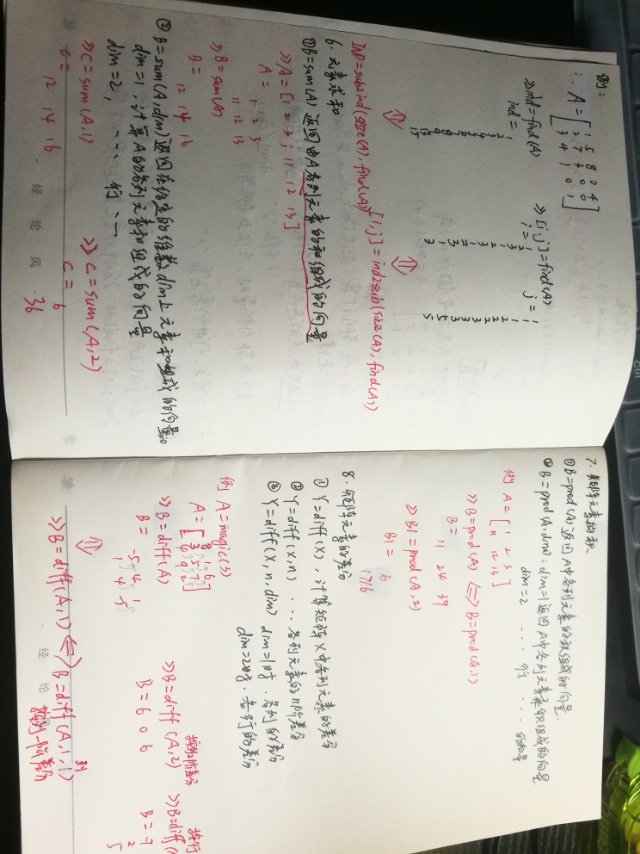 例:
A = [ 1 5 8 0 4
>>ind=find(A)
ind = 1
>> [i,j]=find(A)
i =
j =
IND=sub2ind(size(A), find(A))
[i,j]=ind2sub(size(A), find(A))
6. 元素求和
①B=sum(A) 返回由A各列元素的和组成的向量
>>A=[1 2 3; 11 12 13]
A =
1 2 3
11 12 13
>> B=sum(A)
B =
12 14 16
② B=sum(A,dim) 返回在给定的维数dim上元素和组成的向量。
dim=1, 计算A的各列元素和组成的向量
dim=2, … 行 …
>> C=sum(A,1)
C =
12 14 16
>> C=sum(A,2)
C =
6
36
经 纶 风
7. 矩阵元素的积
①B=prod(A) 返回A中各列元素的积组成的向量.
②B=prod(A,dim): dim=1 返回A中各列元素乘积组成的向量
dim=2 … 行 … 的向量
例 A = [ 1 2 3
11 12 13 ]
>> B=prod(A) <=> B=prod(A,1)
B=
11 24 39
>> B1=prod(A,2)
B1 =
6
1716
8. 矩阵元素的差分
① Y=diff(X), 计算矩阵X中各列元素的差分
② Y=diff(X,n) … 各列元素的n阶差分
③ Y=diff(X,n,dim) dim=1时, 各列的差分
dim=2时, 各行的差分
例 A=magic(3)
A = [ 8 1 6
3 5 7
4 9 2 ]
>> B=diff(A)
B =
-5 4 1
1 4 -5
>>B=diff(A,2)
B = 6 0 6
B = -7
>> B=diff(A,1) <=> B=diff(A,1,1)
经 纶